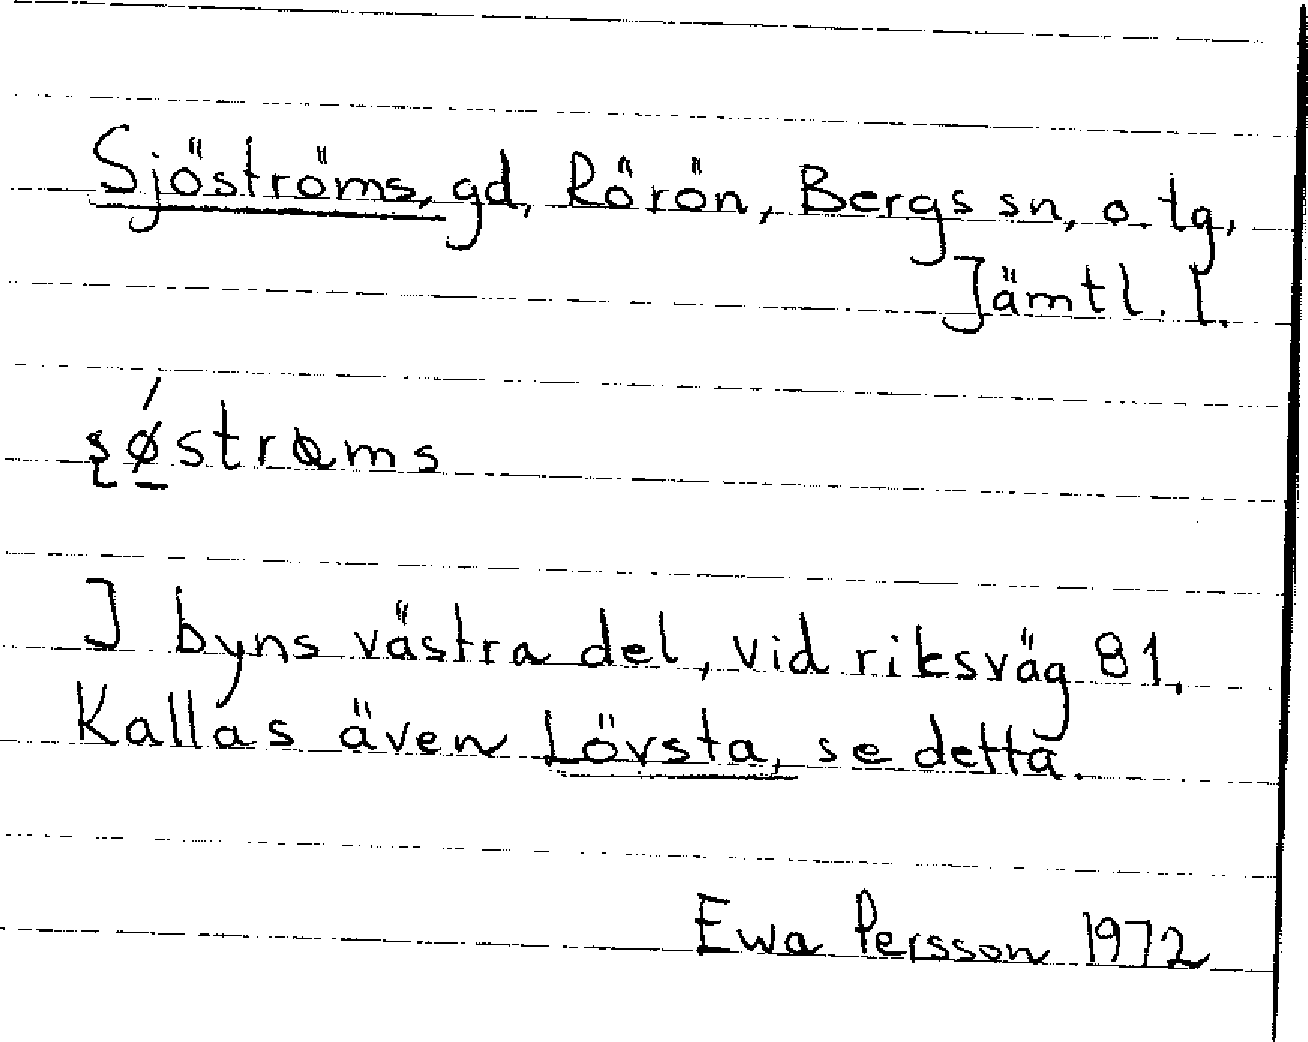 Sjöströms, gd, Rörön, Bergs sn, o. tg,
Jämtl. l.
ʂǿ̠strɷms
I byns västra del, vid riksväg 81.
Kallas även Lövsta, se detta.
Ewa Persson 1972